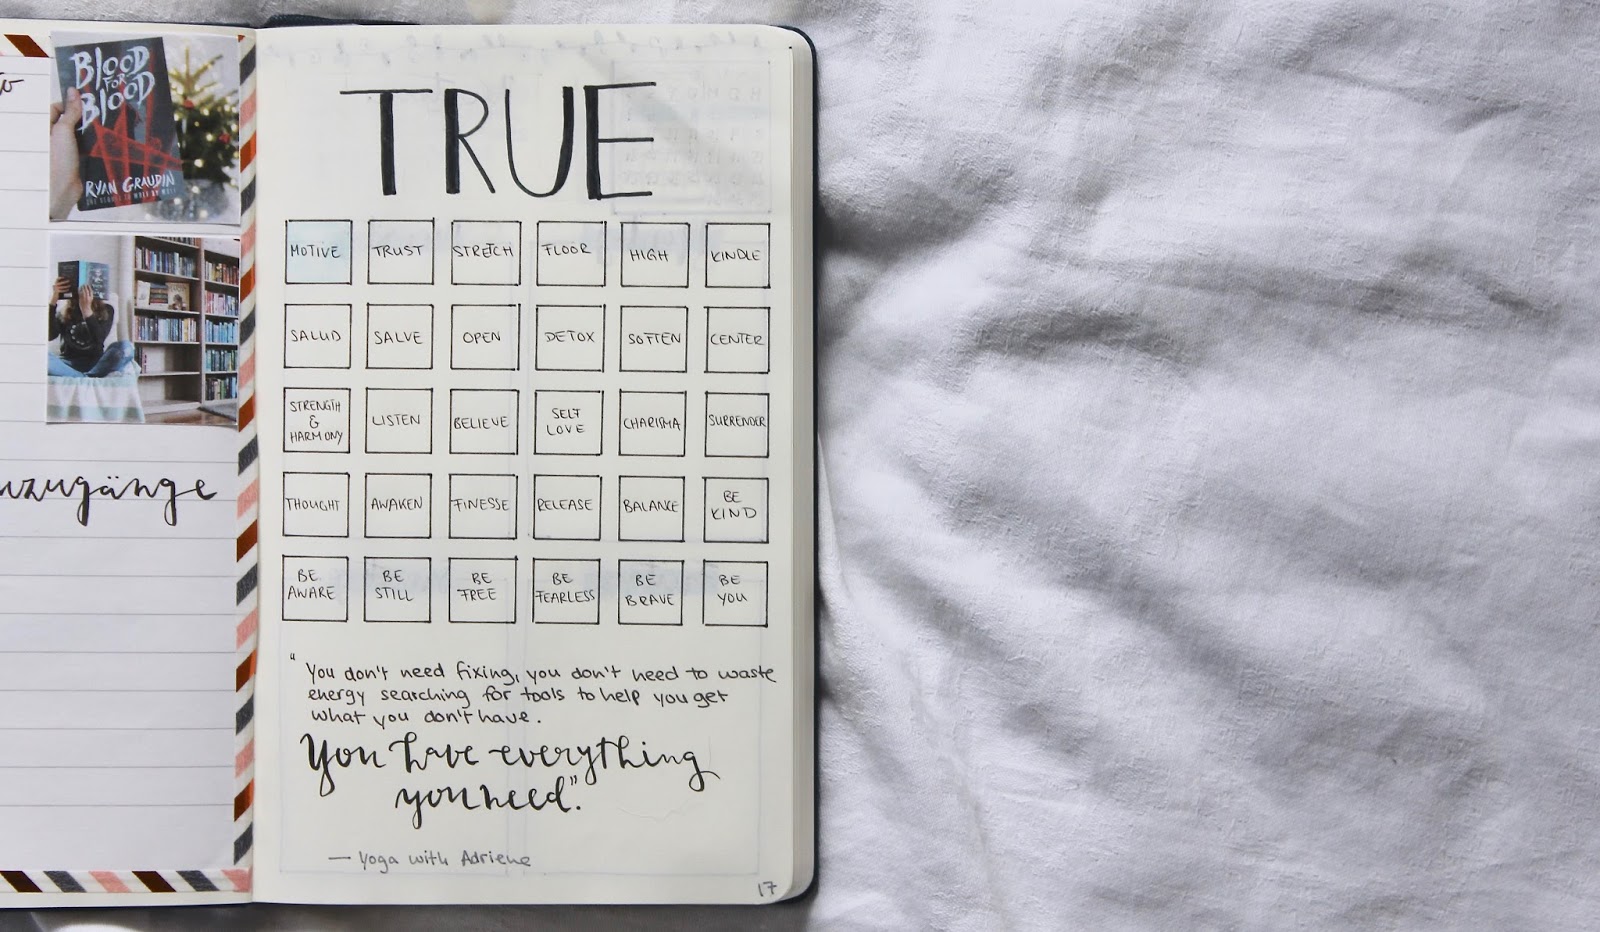 BLOOD
FOR
BLOOD
RYAN GRAUDIN
THE SEQUEL TO WOLF BY WOLF
uzugänge
TRUE
MOTIVE TRUST STRETCH FLOOR HIGH KINDLE
SALUD SALVE OPEN DETOX SOFTEN CENTER
STRENGTH & HARMONY LISTEN BELIEVE SELF LOVE CHARISMA SURRENDER
THOUGHT AWAKEN FINESSE RELEASE BALANCE BE KIND
BE AWARE BE STILL BE FREE BE FEARLESS BE BRAVE BE YOU
"You don't need fixing, you don't need to waste
energy searching for tools to help you get
what you don't have.
You have everything
you need."
— Yoga with Adriene
17